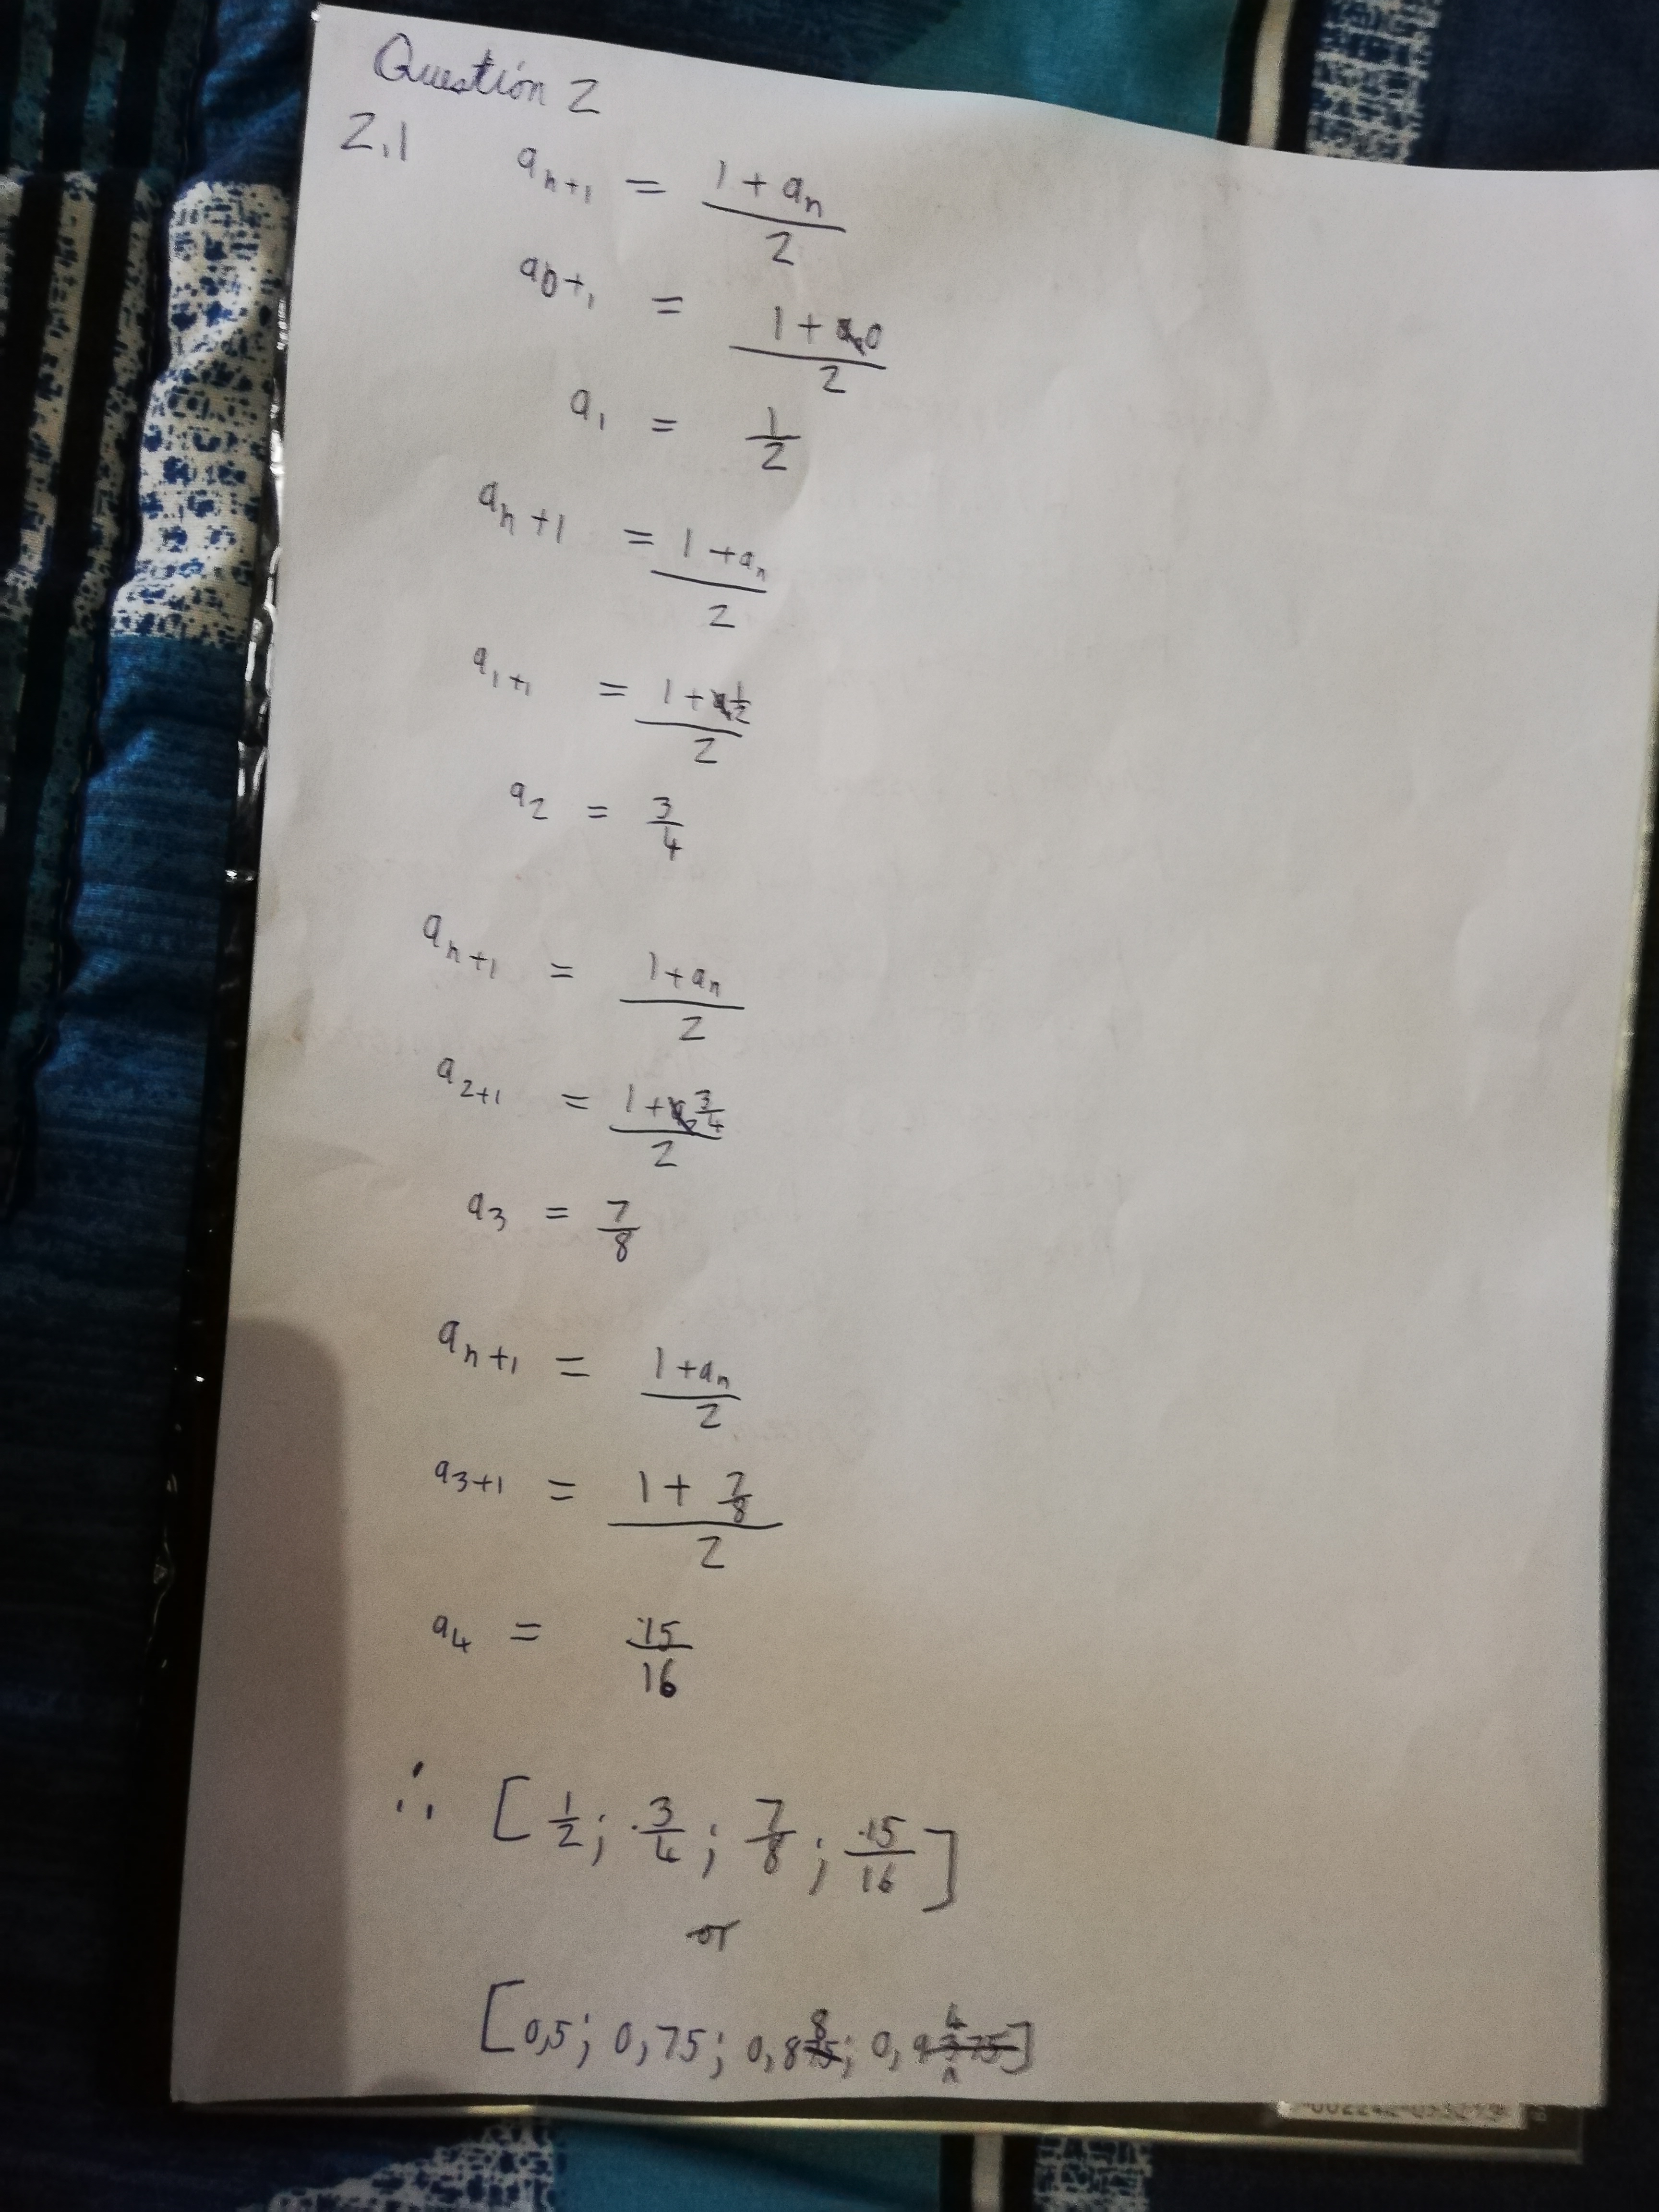 Question 2
2.1 aₙ₊₁ = (1 + aₙ)/2
a₀₊₁ = (1 + 0)/2
a₁ = 1/2
aₙ₊₁ = (1 + aₙ)/2
a₁₊₁ = (1 + 1/2)/2
a₂ = 3/4
aₙ₊₁ = (1 + aₙ)/2
a₂₊₁ = (1 + 3/4)/2
a₃ = 7/8
aₙ₊₁ = (1 + aₙ)/2
a₃₊₁ = (1 + 7/8)/2
a₄ = 15/16
∴ [1/2; 3/4; 7/8; 15/16]
or
[0,5; 0,75; 0,88; 0,94]